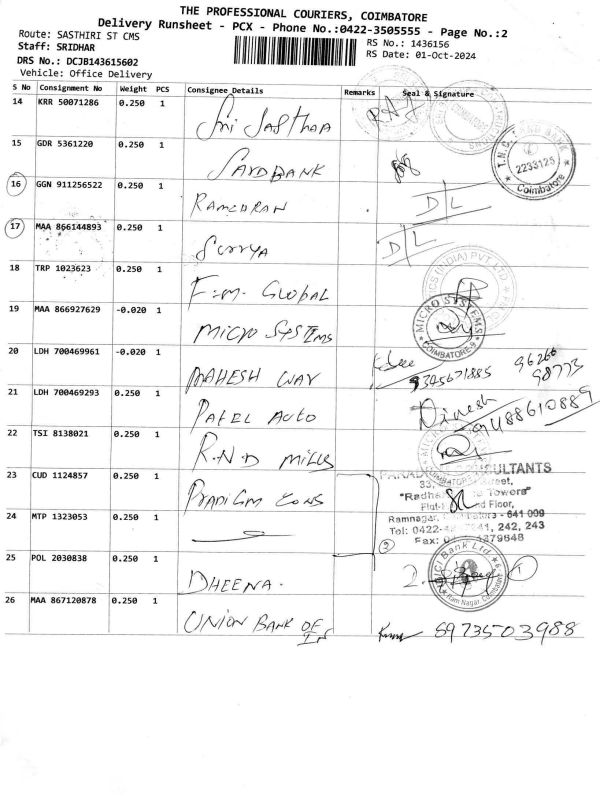 THE PROFESSIONAL COURIERS, COIMBATORE
Delivery Runsheet - PCX - Phone No.:0422-3505555 - Page No.:2
Route: SASTHIRI ST CMS
Staff: SRIDHAR
RS No.: 1436156
DRS No.: DCJB143615602
RS Date: 01-Oct-2024
Vehicle: Office Delivery
S No Consignment No Weight PCS Consignee Details Remarks Seal & Signature
14 KRR 50071286 0.250 1 Sri Jasthaa RAJ
15 GDR 5361220 0.250 1 SAYDBANK
2233125
Coimbatore
16 GGN 911256522 0.250 1 RAMCDRAN D/L
17 MAA 866144893 0.250 1 SURYA D/L
18 TRP 1023623 0.250 1 F.M. GLOBAL
(INDIA) PVT LTD
19 MAA 866927629 -0.020 1 MICRO SYSTEMS
MICRO SYSTEMS
COIMBATORE-9
20 LDH 700469961 -0.020 1 MAHESH WAY 9345671885 96266 98773
21 LDH 700469293 0.250 1 PATEL AUTO Dinesh 9488610889
22 TSI 8138021 0.250 1 R.N.D MILLS
23 CUD 1124857 0.250 1 PRADIGM CONS
CONSULTANTS
33, Street,
"Radha Towers"
Floor,
Ramnagar, - 641 009
24 MTP 1323053 0.250 1
Tel: 0422- 241, 242, 243
Fax: 4279648
2
25 POL 2030838 0.250 1 DHEENA. 2. 1
ICICI Bank Ltd
Ram Nagar, Coimbatore
26 MAA 867120878 0.250 1 UNION BANK OF IN 8973503988